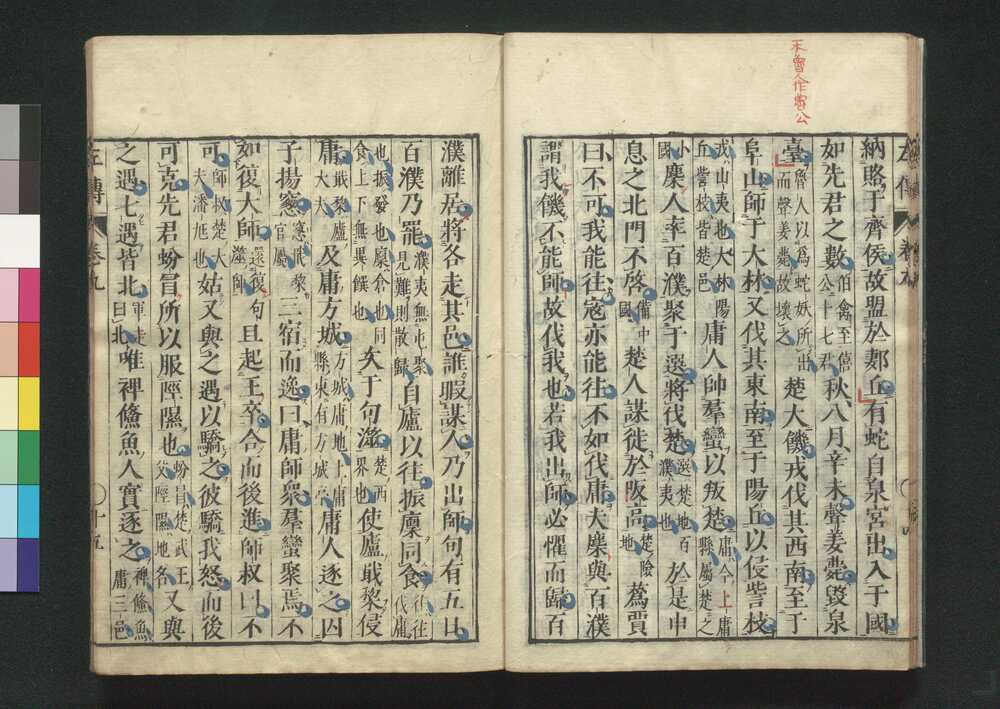 納賂于齊侯故盟於郪丘有蛇自泉宮出入于國
如先君之數伯禽至僖公十七君秋八月辛未聲姜薨毀泉
臺魯人以為蛇妖所出而聲姜薨故壞之楚大饑戎伐其西南至于
阜山師于大林又伐其東南至于陽丘以侵訾枝
戎山夷也大林陽丘訾枝皆楚邑庸人帥羣蠻以叛楚庸今上庸縣屬楚之
小國麇人率百濮聚于選將伐楚選楚地百濮夷也於是申
息之北門不啓備中國楚人謀徙於阪高楚險地蒍賈
曰不可我能往寇亦能往不如伐庸夫麇與百濮
謂我饑不能師故伐我也若我出師必懼而歸百
濮離居將各走其邑誰暇謀人乃出師旬有五日
百濮乃罷濮夷無屯聚見難則散歸自廬以往振廩同食往往伐庸
也振發也廩倉也同食上下無異饌也次于句澨楚西界也使廬戢黎侵
庸戢黎廬大夫及庸方城方城庸地上庸縣東有方城亭庸人逐之囚
子揚窻窻戢黎官屬三宿而逸曰庸師衆羣蠻聚焉不
如復大師還復句澨師且起王卒合而後進師叔曰不
可師叔楚大夫潘尫也姑又與之遇以驕之彼驕我怒而後
可克先君蚡冒所以服陘隰也蚡冒楚武王父陘隰地名又與
之遇七遇皆北軍走曰北唯裨鯈魚人實逐之裨鯈魚庸三邑